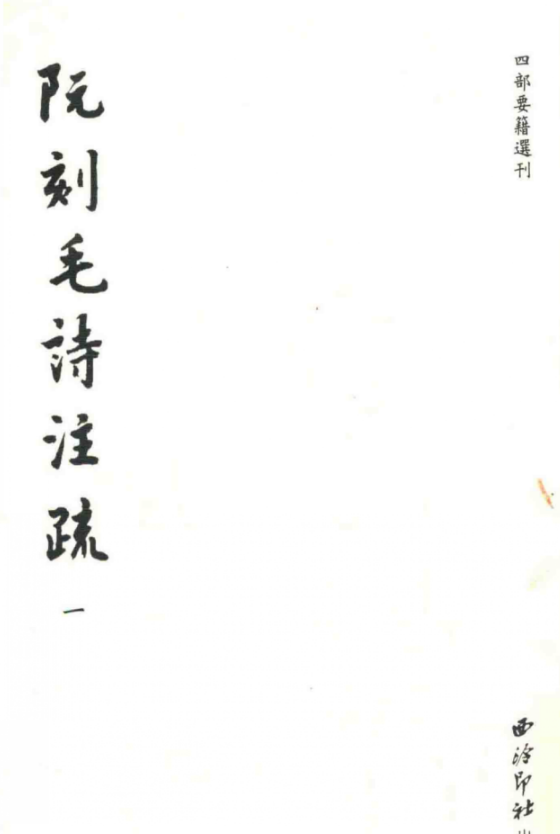 四部要籍選刊
阮刻毛詩注疏
一
西泠印社